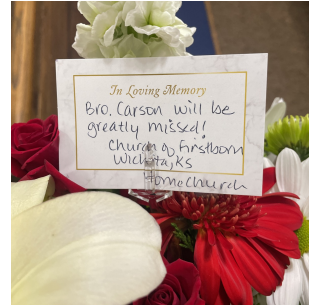 In Loving Memory
Bro. Carson will be
greatly missed!
Church of Firstborn
Wichita, KS
Home Church